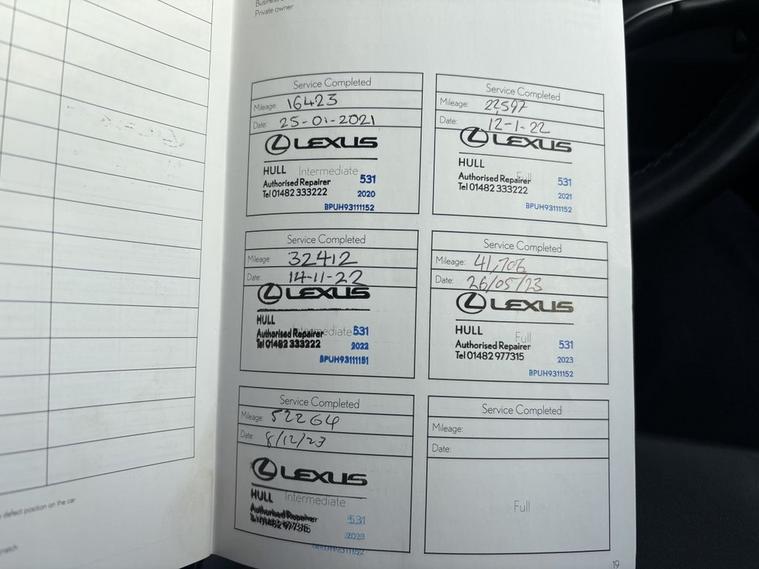 Private owner
Service Completed
Mileage: 16423
Date: 25-01-2021
LEXUS
HULL Intermediate
Authorised Repairer 531
Tel 01482 333222 2020
BPUH93111152
Service Completed
Mileage: 22,597
Date: 12-1-22
LEXUS
HULL Full
Authorised Repairer 531
Tel 01482 333222 2021
BPUH93111152
Service Completed
Mileage: 32412
Date: 14-11-22
LEXUS
HULL
Authorised Repairer Intermediate 531
Tel 01482 333222 2022
BPUH93111151
Service Completed
Mileage: 41,706
Date: 26/05/23
LEXUS
HULL Full
Authorised Repairer 531
Tel 01482 977315 2023
BPUH93111152
Service Completed
Mileage: 52264
Date: 8/12/23
LEXUS
HULL Intermediate
Authorised Repairer 531
Tel 01482 977315 2023
Service Completed
Mileage:
Date:
Full
defect position on the car
19